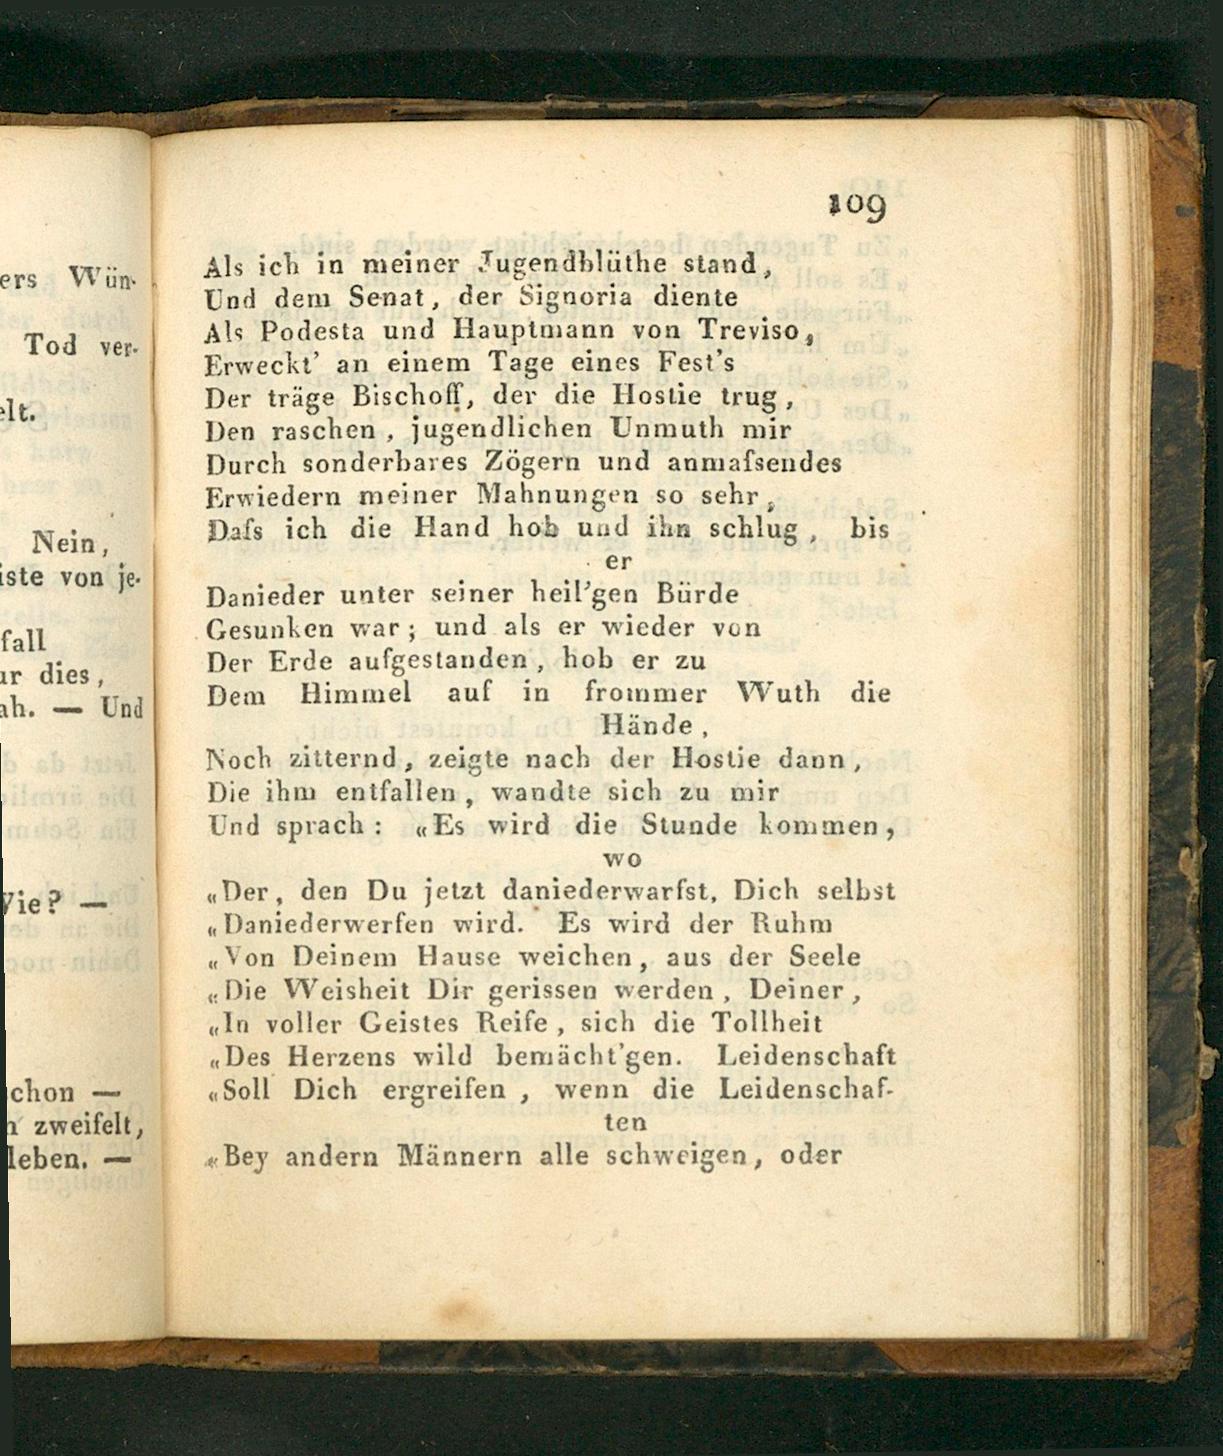 ers Wün-
Tod ver-
elt.
Nein,
iste von je-
fall
ur dies,
ah. — Und
Wie? —
chon —
n zweifelt,
leben. —
109
Als ich in meiner Jugendblüthe stand,
Und dem Senat, der Signoria diente
Als Podesta und Hauptmann von Treviso,
Erweckt' an einem Tage eines Fest's
Der träge Bischoff, der die Hostie trug,
Den raschen, jugendlichen Unmuth mir
Durch sonderbares Zögern und anmaſsendes
Erwiedern meiner Mahnungen so sehr,
Daſs ich die Hand hob und ihn schlug, bis
er
Danieder unter seiner heil'gen Bürde
Gesunken war; und als er wieder von
Der Erde aufgestanden, hob er zu
Dem Himmel auf in frommer Wuth die
Hände,
Noch zitternd, zeigte nach der Hostie dann,
Die ihm entfallen, wandte sich zu mir
Und sprach: «Es wird die Stunde kommen,
wo
«Der, den Du jetzt daniederwarfst, Dich selbst
«Daniederwerfen wird. Es wird der Ruhm
«Von Deinem Hause weichen, aus der Seele
«Die Weisheit Dir gerissen werden, Deiner,
«In voller Geistes Reife, sich die Tollheit
«Des Herzens wild bemächt'gen. Leidenschaft
«Soll Dich ergreifen, wenn die Leidenschaf-
ten
«Bey andern Männern alle schweigen, oder